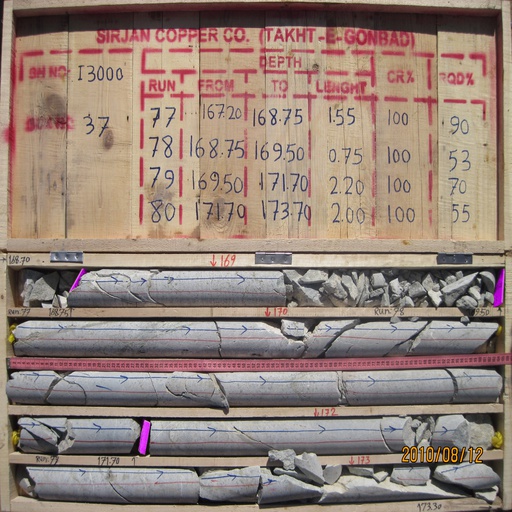 SIRJAN COPPER CO. (TAKHT-E-GONBAD)
BH NO: I3000
DEPTH
RUN FROM TO LENGHT CR% RQD%
37
77 167.20 168.75 1.55 100 90
78 168.75 169.50 0.75 100 53
79 169.50 171.70 2.20 100 70
80 171.70 173.70 2.00 100 55
168.70 ↓169
Run: 77 168.75↑ ↓170 Run: 78 169.50↑
↓172
2010/08/12
171.70 ↑ ↓173
173.30